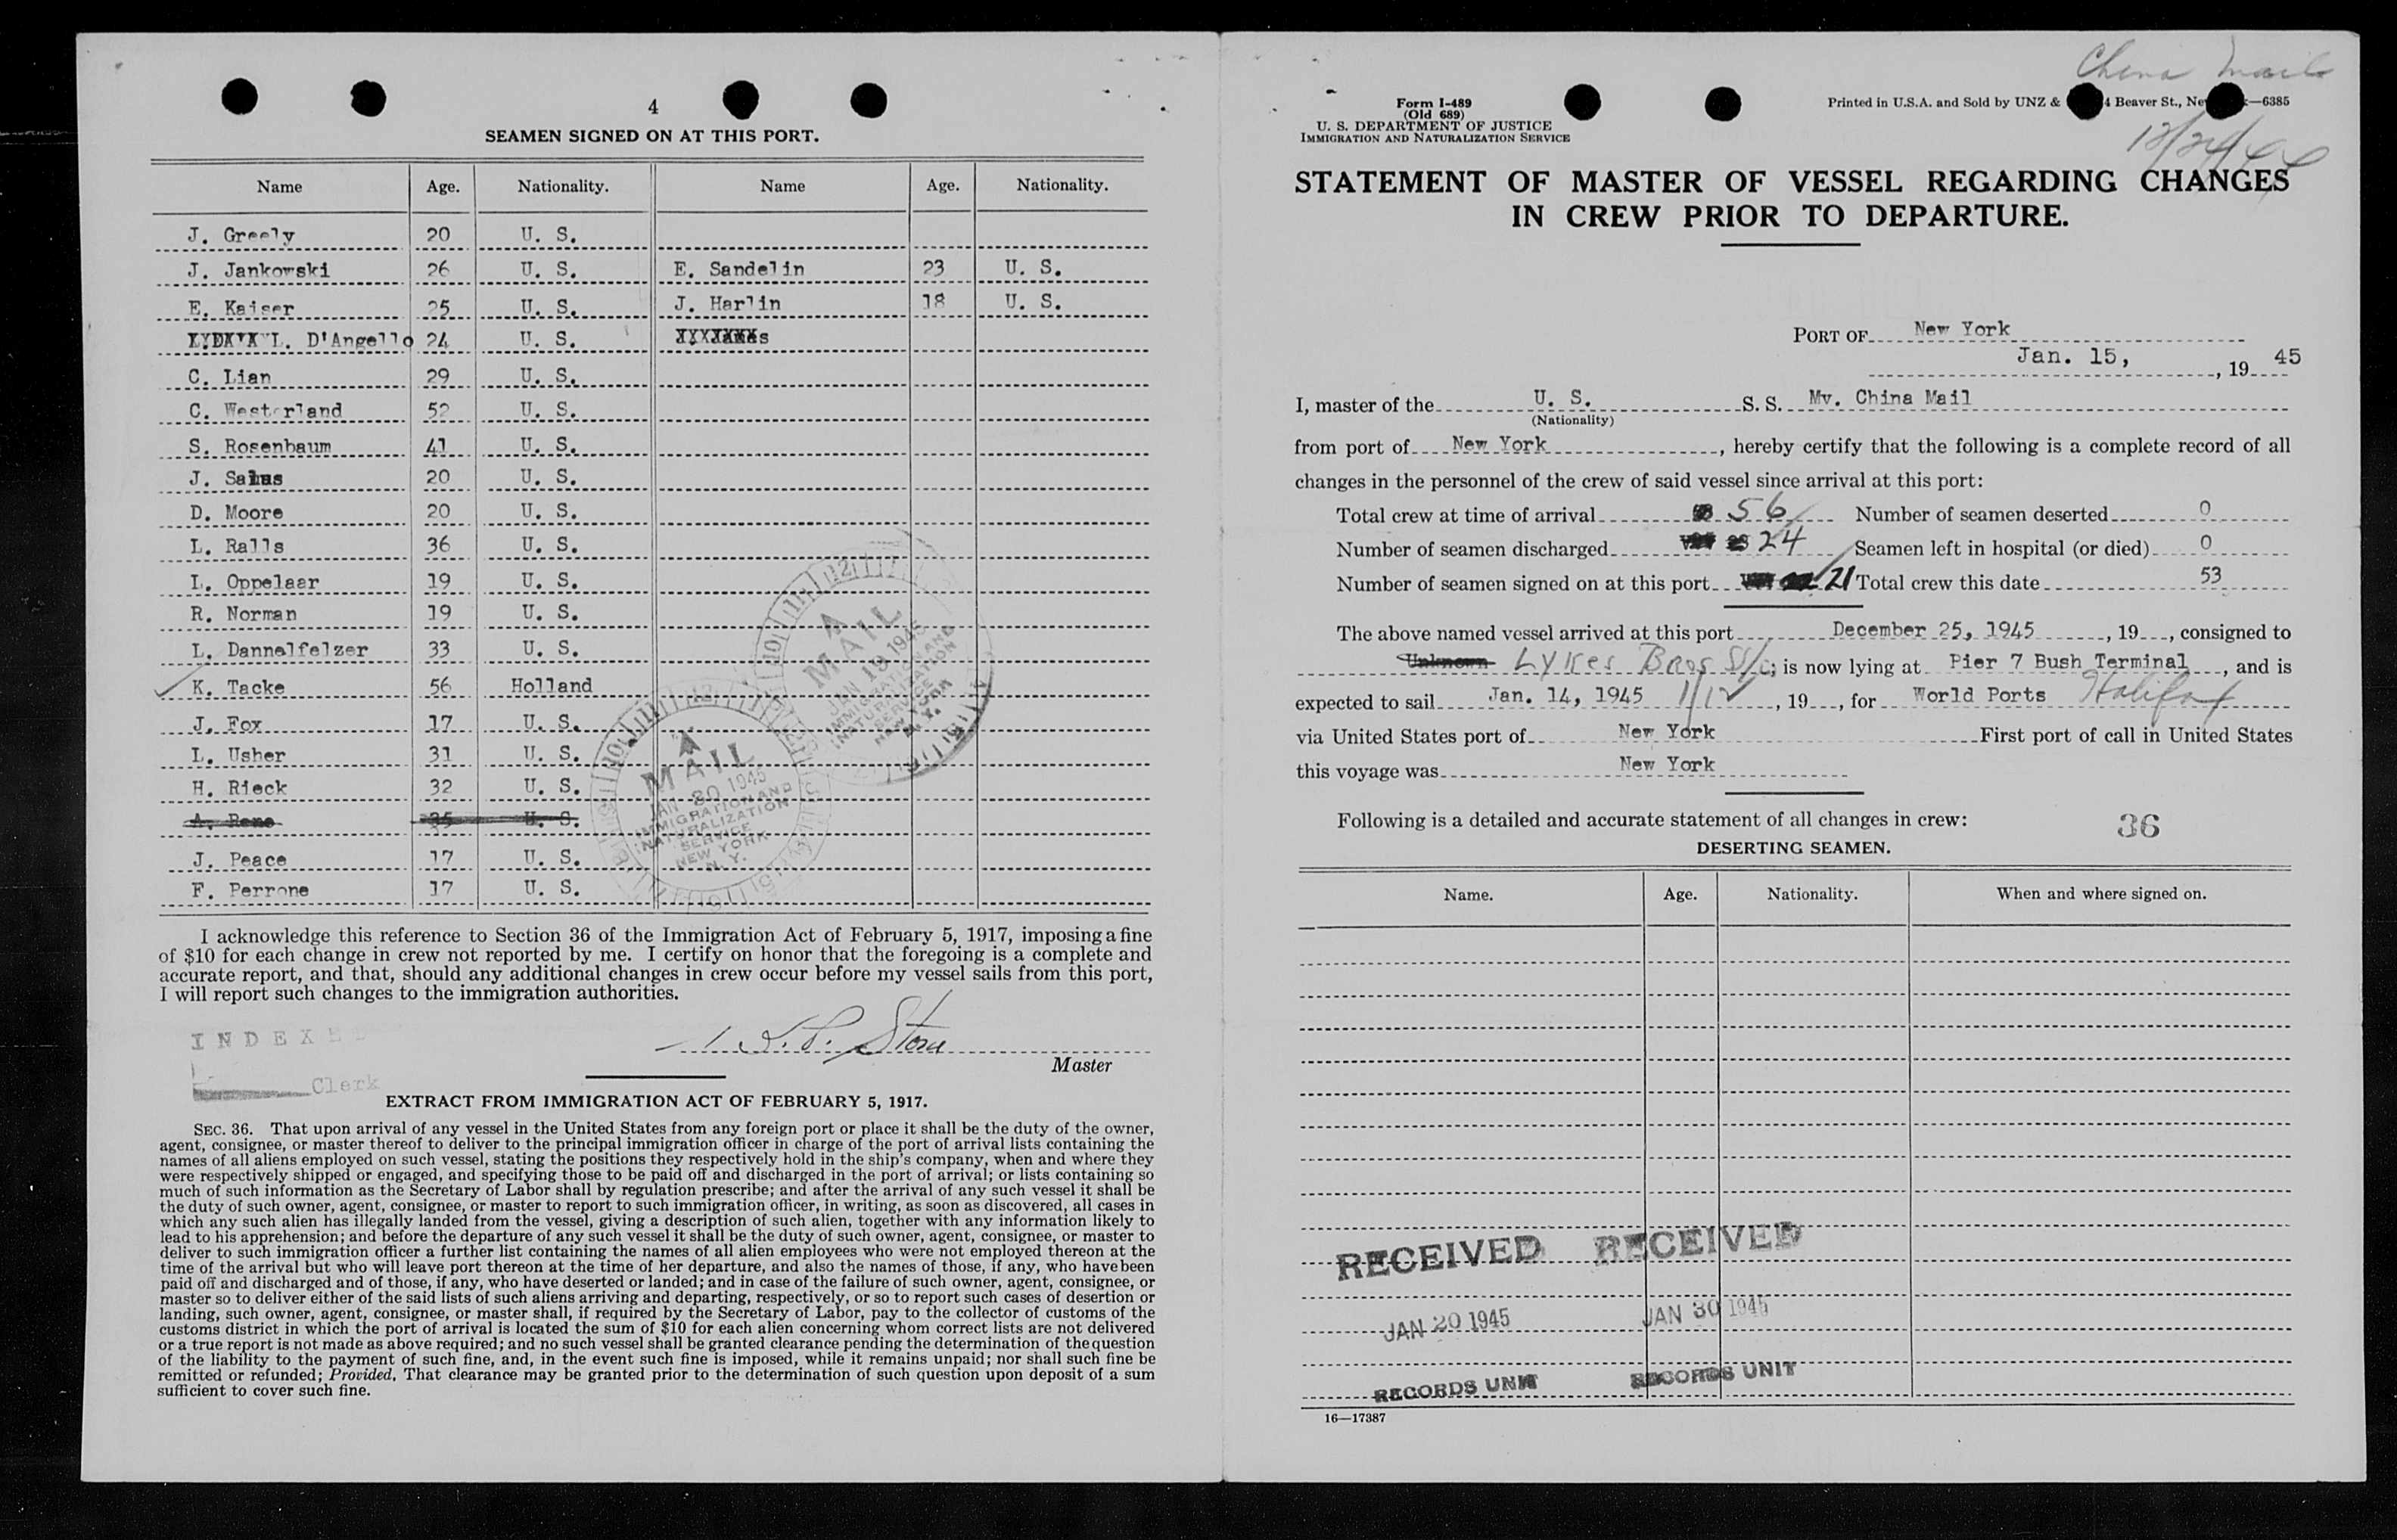 4
SEAMEN SIGNED ON AT THIS PORT.
Name Age. Nationality. Name Age. Nationality.
J. Greely 20 U. S.
J. Jankowski 26 U. S. E. Sandelin 23 U. S.
E. Kaiser 25 U. S. J. Harlin 18 U. S.
L. D'Angello 24 U. S.
C. Lian 29 U. S.
C. Westerland 52 U. S.
S. Rosenbaum 41 U. S.
J. 20 U. S.
D. Moore 20 U. S.
L. Ralls 36 U. S.
L. Oppelaar 19 U. S.
R. Norman 19 U. S.
L. Dannelfelzer 33 U. S.
K. Tacke 56 Holland
J. Fox 17 U. S.
L. Usher 31 U. S.
H. Rieck 32 U. S.
A. Rene 35 U. S.
J. Peace 17 U. S.
F. Perrone 17 U. S.
A
MAIL
JAN 19 1945
IMMIGRATION AND
NATURALIZATION
SERVICE
NEW YORK
N. Y.
A
MAIL
JAN 30 1945
IMMIGRATION AND
NATURALIZATION
SERVICE
NEW YORK
N. Y.
I acknowledge this reference to Section 36 of the Immigration Act of February 5, 1917, imposing a fine
of $10 for each change in crew not reported by me. I certify on honor that the foregoing is a complete and
accurate report, and that, should any additional changes in crew occur before my vessel sails from this port,
I will report such changes to the immigration authorities.
INDEXED
Clerk
Stone
Master
EXTRACT FROM IMMIGRATION ACT OF FEBRUARY 5, 1917.
SEC. 36. That upon arrival of any vessel in the United States from any foreign port or place it shall be the duty of the owner,
agent, consignee, or master thereof to deliver to the principal immigration officer in charge of the port of arrival lists containing the
names of all aliens employed on such vessel, stating the positions they respectively hold in the ship's company, when and where they
were respectively shipped or engaged, and specifying those to be paid off and discharged in the port of arrival; or lists containing so
much of such information as the Secretary of Labor shall by regulation prescribe; and after the arrival of any such vessel it shall be
the duty of such owner, agent, consignee, or master to report to such immigration officer, in writing, as soon as discovered, all cases in
which any such alien has illegally landed from the vessel, giving a description of such alien, together with any information likely to
lead to his apprehension; and before the departure of any such vessel it shall be the duty of such owner, agent, consignee, or master to
deliver to such immigration officer a further list containing the names of all alien employees who were not employed thereon at the
time of the arrival but who will leave port thereon at the time of her departure, and also the names of those, if any, who have been
paid off and discharged and of those, if any, who have deserted or landed; and in case of the failure of such owner, agent, consignee, or
master so to deliver either of the said lists of such aliens arriving and departing, respectively, or so to report such cases of desertion or
landing, such owner, agent, consignee, or master shall, if required by the Secretary of Labor, pay to the collector of customs of the
customs district in which the port of arrival is located the sum of $10 for each alien concerning whom correct lists are not delivered
or a true report is not made as above required; and no such vessel shall be granted clearance pending the determination of the question
of the liability to the payment of such fine, and, in the event such fine is imposed, while it remains unpaid; nor shall such fine be
remitted or refunded; Provided, That clearance may be granted prior to the determination of such question upon deposit of a sum
sufficient to cover such fine.
China Mail
12/24/44
Form I-489
(Old 689)
U. S. DEPARTMENT OF JUSTICE
IMMIGRATION AND NATURALIZATION SERVICE
Printed in U.S.A. and Sold by UNZ & 4 Beaver St., —6385
STATEMENT OF MASTER OF VESSEL REGARDING CHANGES
IN CREW PRIOR TO DEPARTURE.
PORT OF New York
Jan. 15, , 19 45
I, master of the U. S. S. S. Mv. China Mail
(Nationality)
from port of New York , hereby certify that the following is a complete record of all
changes in the personnel of the crew of said vessel since arrival at this port:
Total crew at time of arrival 56 Number of seamen deserted 0
Number of seamen discharged 24 Seamen left in hospital (or died) 0
Number of seamen signed on at this port 21 Total crew this date 53
The above named vessel arrived at this port December 25, 1945 , 19 , consigned to
Unknown Lykes Bros S/S ; is now lying at Pier 7 Bush Terminal , and is
expected to sail Jan. 14, 1945 1/12 , 19 , for World Ports Halifax
via United States port of New York First port of call in United States
this voyage was New York
Following is a detailed and accurate statement of all changes in crew: 36
DESERTING SEAMEN.
Name. Age. Nationality. When and where signed on.
RECEIVED RECEIVED
JAN 20 1945 JAN 30 1945
RECORDS UNIT RECORDS UNIT
16—17387